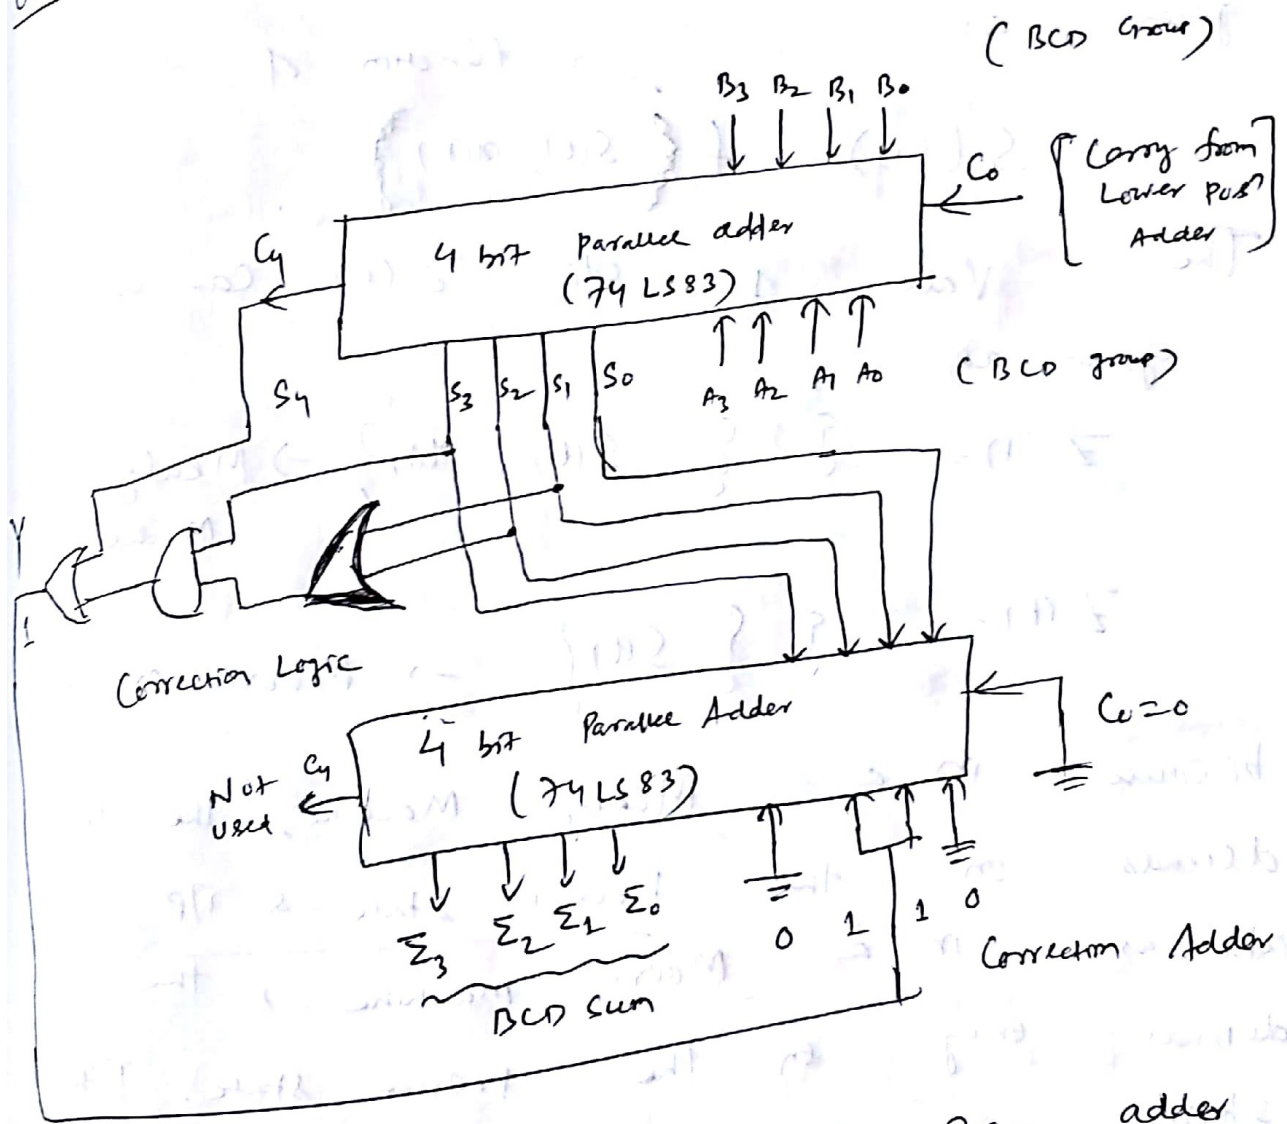 (BCD Group)
B3 B2 B1 B0
C0
[Carry from
Lower Posn
Adder]
4 bit parallel adder
(74LS83)
C4
S4
S3 S2 S1 S0
A3 A2 A1 A0
(BCD group)
Y
1
Correction Logic
4 bit Parallel Adder
(74LS83)
C0=0
C4
Not
used
Σ3 Σ2 Σ1 Σ0
0 1 1 0
Correction Adder
BCD Sum
adder